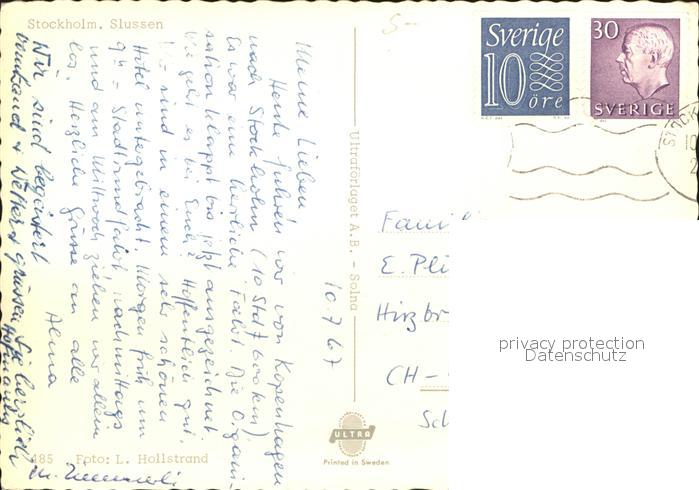 Stockholm. Slussen
Meine Lieben
Heute fuhren wir von Kopenhagen
nach Stockholm (10 Std / 600 km)
Es war eine herrliche Fahrt. Die Organi-
sation klappt bis jetzt ausgezeichnet
Wie geht es bei Euch? Hoffentlich gut.
Wir sind in einem sehr schönen
Hotel untergebracht. Morgen früh um
9 Stadtrundfahrt, nachmittags
und am Mittwoch ziehen wir allein
los. Herzliche Grüsse an alle
Alma
Wir sind begeistert
von Land + Wetter + grüssen Sie herzlich
10.7.67
Ultraförlaget A.B. - Solna
485 Foto: L. Hollstrand
ULTRA
Printed in Sweden
Sverige
10
öre
30
SVERIGE
STOCK
Famili
E. Pli
Hirzbr
CH-
Sch
privacy protection
Datenschutz